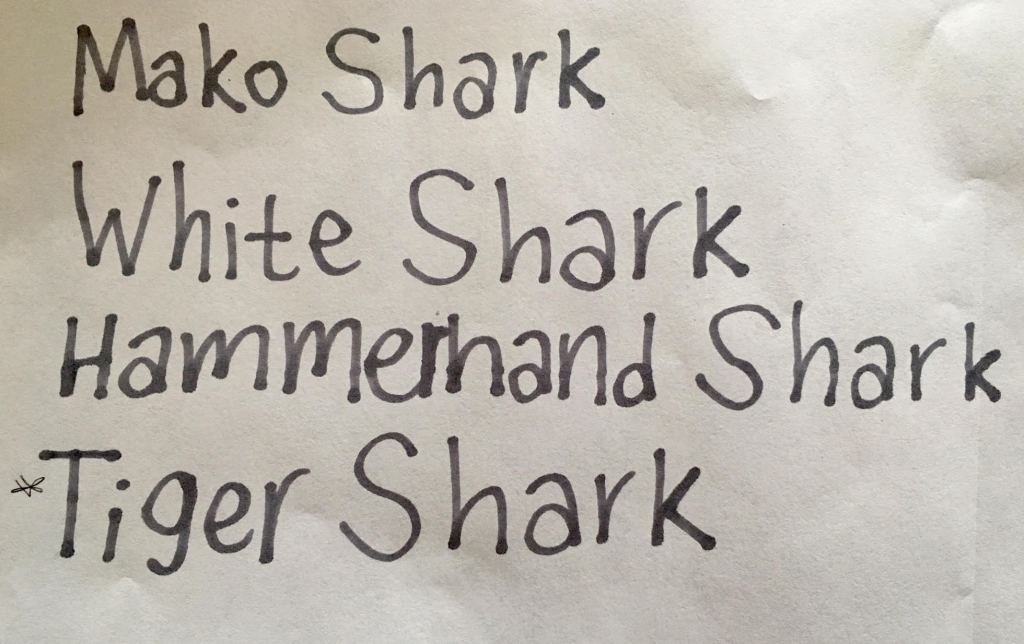 Mako Shark
White Shark
Hammerhand Shark
*Tiger Shark